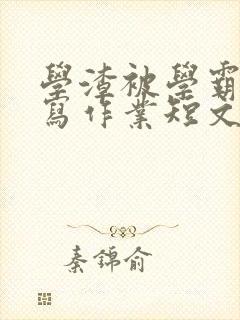 學渣被學霸
寫作業短文
秦錦俞